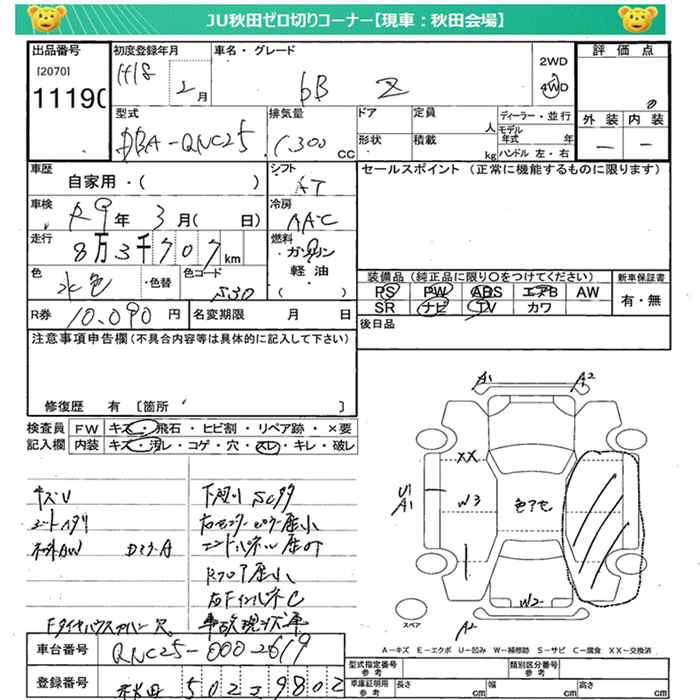 JU秋田ゼロ切りコーナー【現車：秋田会場】
出品番号
[2070]
1119
初度登録年月
H18 2 月
車名・グレード
bB Z
2WD
4WD
評価点
外装 内装
－ －
型式
DBA-QNC25
排気量
1.300 cc
ドア
形状
定員 人
積載 kg
ディーラー・並行
モデル年式 年
ハンドル 左・右
車歴
自家用・( )
シフト
AT
車検
R9年 3月( 日)
冷房
AAC
走行
8万3千707km
燃料
ガソリン
軽油
( )
色
水色 ・色替
色コード
S30
R券 10,090 円
名変期限 月 日
セールスポイント (正常に機能するものに限ります)
装備品 (純正品に限り○をつけてください)
新車保証書
PS PW ABS エアB AW
SR ナビ TV カワ
有・無
後日品
注意事項申告欄(不具合内容等は具体的に記入して下さい)
修復歴 有 〔箇所 〕
検査員記入欄
FW キズ・飛石・ヒビ割・リペア跡・×要
内装 キズ・汚レ・コゲ・穴・スレ・キレ・破レ
キズU
シートヘタリ
下廻りSC99
エンドパネル
Rフロア 歪小
事故現状車
A1 A2
XX
U1
A1
W3
色アセ
W2
A2
スペア
A－キズ E－エクボ U－凹み W－補修跡 S－サビ C－腐食 XX－交換済
車台番号
QNC25-0002619
登録番号
秋田 502 さ 9802
型式指定番号
参考
類別区分番号
参考
車庫証明用
参考
長さ cm
幅 cm
高さ cm